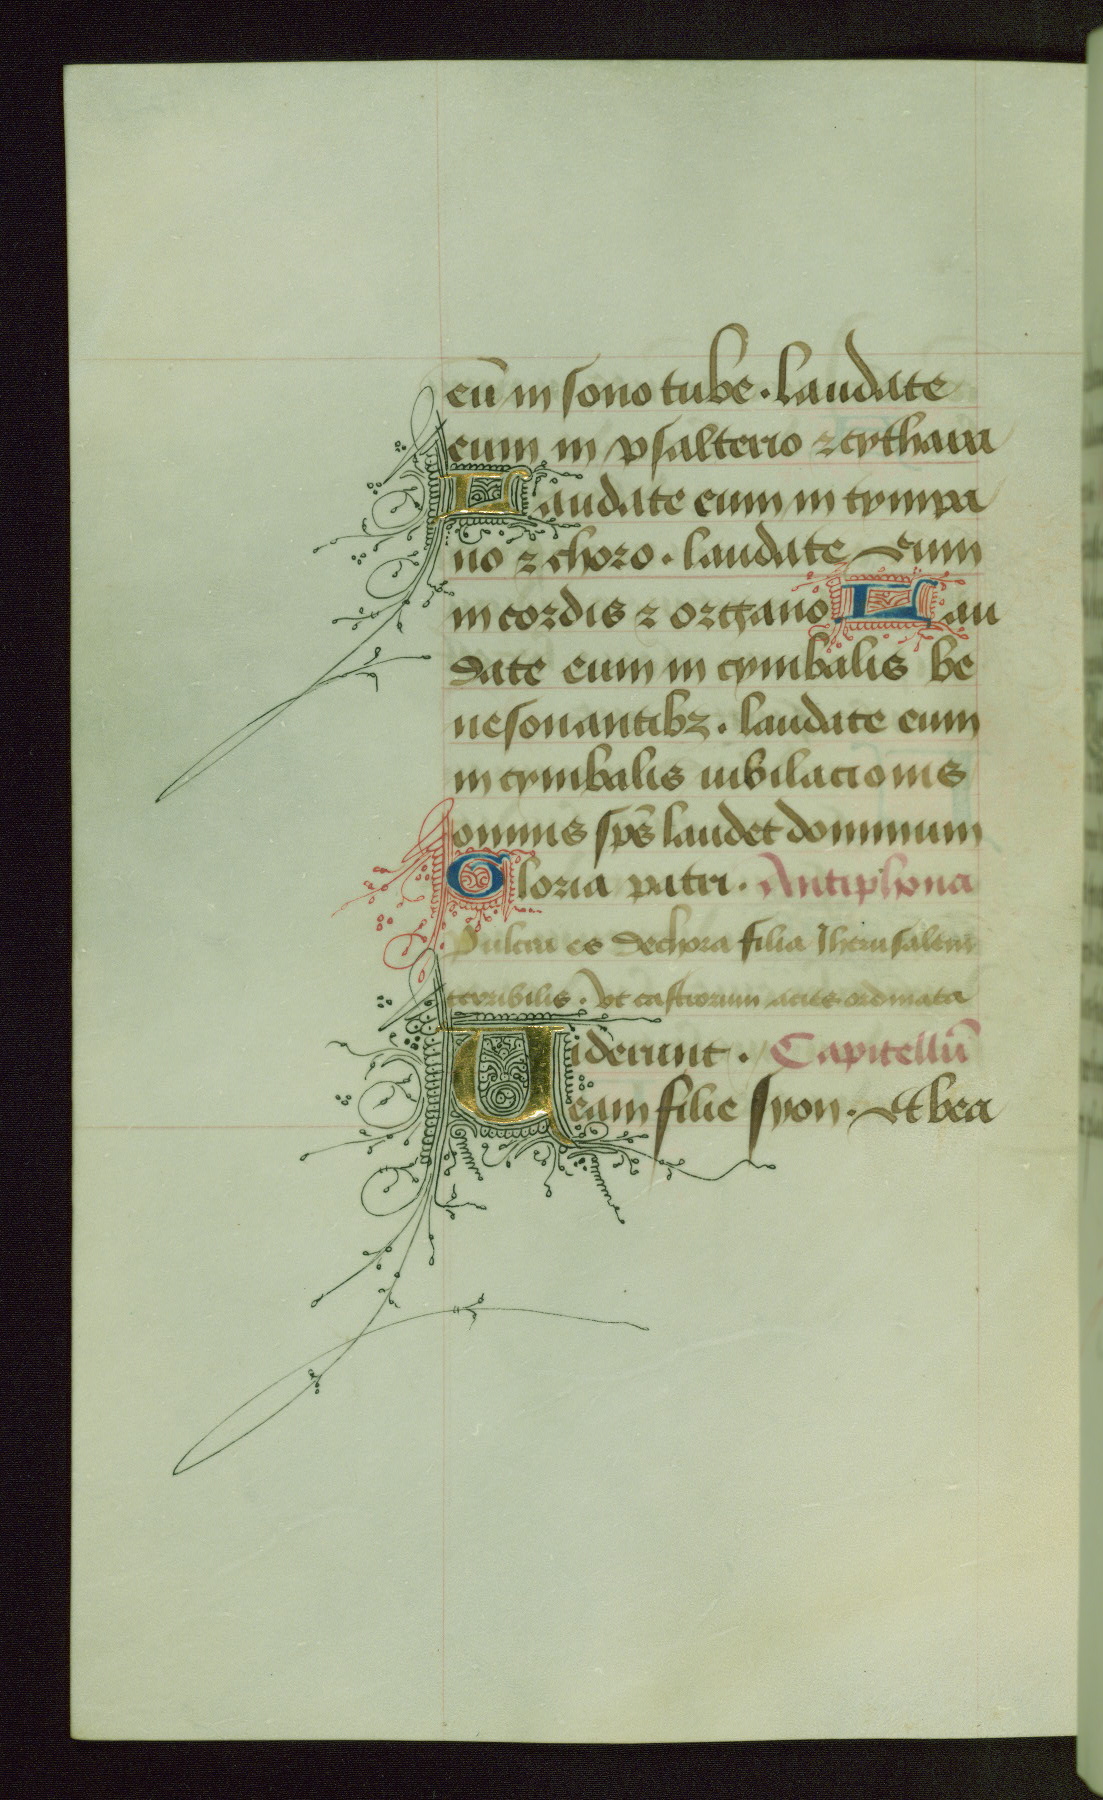 eū in sono tube. laudate
eum in psalterio ⁊ cythara
Laudate eum in tympa
no ⁊ choro. laudate eum
in cordis ⁊ organo Lau
date eum in cymbalis be
nesonantibꝫ. laudate eum
in cymbalis iubilacionis
omnis sps̄ laudet dominum
Gloria patri. Antiphona
Pulcra es dechora filia Jherusalem
terribilis. vt castrorum acies ordinata
Viderunt. Capitellū
eam filie syon. Et bea